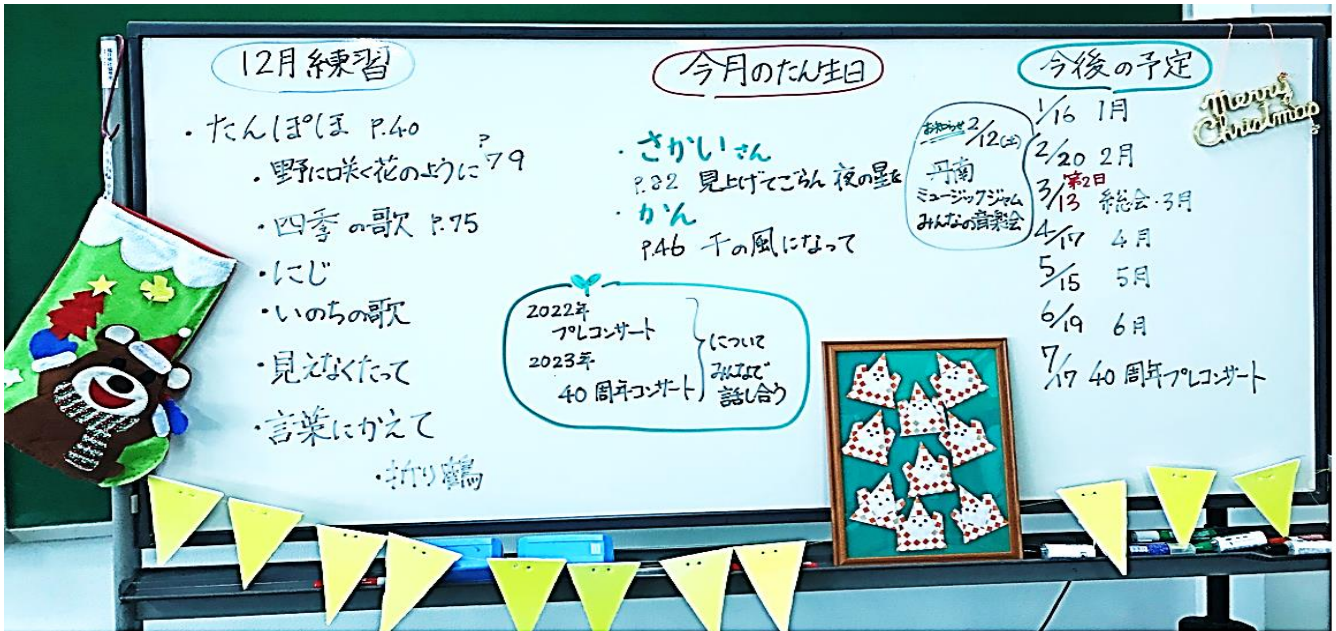 12月 練習
・たんぽぽ P.40
・野に咲く花のように P79
・四季の歌 P.75
・にじ
・いのちの歌
・見えなくたって
・言葉にかえて
・折り鶴
今月のたん生日
・さかいさん
P.82 見上げてごらん 夜の星を
・かん
P.46 千の風になって
2022年
プレコンサート
2023年
40周年コンサート
について
みんなで
話し合う
お知らせ 2/12(土)
丹南
ミュージックジャム
みんなの音楽会
今後の予定
1/16 1月
2/20 2月
3/13 第2日 総会・3月
4/17 4月
5/15 5月
6/19 6月
7/17 40周年プレコンサート
Merry
Christmas